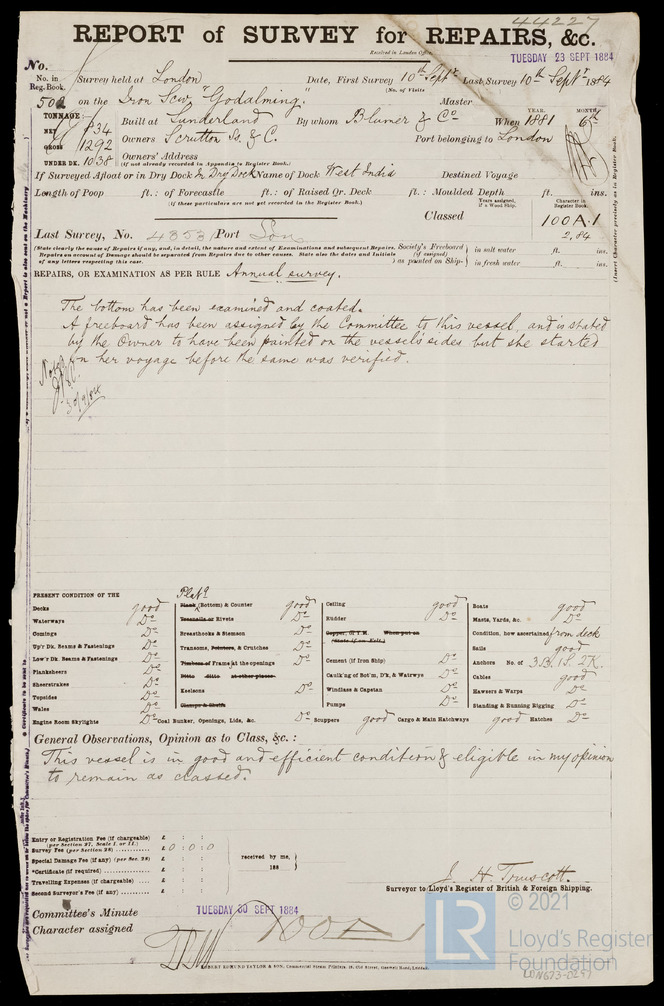 44227
REPORT of SURVEY for REPAIRS, &c.
Received in London Office,
TUESDAY 23 SEPT 1884
No.
No. in Reg. Book. Survey held at London Date, First Survey 10th Septr Last Survey 10th Septr 1884
(No. of Visits
on the Iron Scw "Godalming." Master
TONNAGE: Built at Sunderland By whom Blumer & Co When 1881 6th
YEAR. MONTH.
NET 834
GROSS 1292 Owners Scrutton So. & C. Port belonging to London
UNDER DK. 1038 Owners' Address
(If not already recorded in Appendix to Register Book.)
If Surveyed Afloat or in Dry Dock In Dry Dock Name of Dock West India Destined Voyage
Length of Poop ft.: of Forecastle ft.: of Raised Qr. Deck ft.: Moulded Depth ft. ins.
(If these particulars are not yet recorded in the Register Book.)
Years assigned, if a Wood Ship. Character in Register Book.
Classed 100A.1
2,84
Last Survey, No. 4353 Port Lon
(State clearly the cause of Repairs if any, and, in detail, the nature and extent of Examinations and subsequent Repairs.
Repairs on account of Damage should be separated from Repairs due to other causes. State also the dates and Initials
of any letters respecting this case.
Society's Freeboard (if assigned) as painted on Ship- in salt water ft. ins.
in fresh water ft. ins.
(Insert Character precisely as in Register Book.
REPAIRS, OR EXAMINATION AS PER RULE Annual survey.
The bottom has been examined and coated.
A freeboard has been assigned by the Committee to this vessel, and is stated
by the Owner to have been painted on the vessel's sides but she started
on her voyage before the same was verified.
Noted
30/9/84
PRESENT CONDITION OF THE
Decks good
Waterways Do
Comings Do
Up'r Dk. Beams & Fastenings Do
Low'r Dk. Beams & Fastenings Do
Planksheers Do
Sheerstrakes Do
Topsides Do
Wales Do
Engine Room Skylights Do
Platg
Plank (Bottom) & Counter good
Treenails or Rivets Do
Breasthooks & Stemson Do
Transoms, Pointers, & Crutches Do
Timbers of Frame at the openings Do
Ditto ditto at other places
Keelsons Do
Clamps & Shelfs
Coal Bunker, Openings, Lids, &c. Do
Ceiling good
Rudder Do
Copper, or Y.M. When put on
(State if on Felt.)
Cement (if Iron Ship) Do
Caulk'ng of Bot'm, D'k, & Watrwys Do
Windlass & Capstan Do
Pumps Do
Scuppers good Cargo & Main Hatchways good Hatches Do
Boats good
Masts, Yards, &c. Do
Condition, how ascertained from deck
Sails good
Anchors No. of 3.B. 1S. 2K.
Cables good
Hawsers & Warps Do
Standing & Running Rigging Do
General Observations, Opinion as to Class, &c.:
This vessel is in good and efficient condition & eligible in my opinion
to remain as classed.
Entry or Registration Fee (if chargeable) £ : :
(per Section 27, Scale I. or II.)
Survey Fee (per Section 28) £ 0 : 0 : 0
Special Damage Fee (if any) (per Sec. 28) £ : :
*Certificate (if required) £ : :
Travelling Expenses (if chargeable) £ : :
Second Surveyor's Fee (if any) £ : :
received by me,
188
J. H. Truscott.
Surveyor to Lloyd's Register of British & Foreign Shipping.
Committee's Minute
TUESDAY 30 SEPT 1884
Character assigned 100A1
© 2021
LR
Lloyd's Register
Foundation
LON673-0247